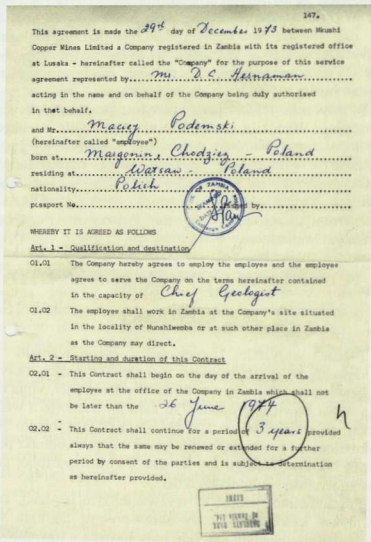 147.
This agreement is made the 29th day of December 1973 between Mkushi
Copper Mines Limited a Company registered in Zambia with its registered office
at Lusaka - hereinafter called the "Company" for the purpose of this service
agreement represented by Mr D.C. Hernaman
acting in the name and on behalf of the Company being duly authorised
in that behalf.
and Mr. Maciej Podemski
(hereinafter called "employee")
born at Margonin, Chodziez - Poland
residing at Warsaw - Poland
nationality Polish
Passport No. issued by
WHEREBY IT IS AGREED AS FOLLOWS
Art. 1 - Qualification and destination
01.01 The Company hereby agrees to employ the employee and the employee
agrees to serve the Company on the terms hereinafter contained
in the capacity of Chief Geologist
01.02 The employee shall work in Zambia at the Company's site situated
in the locality of Munshiwemba or at such other place in Zambia
as the Company may direct.
Art. 2 - Starting and duration of this Contract
02.01 - This Contract shall begin on the day of the arrival of the
employee at the office of the Company in Zambia which shall not
be later than the 26 June 1974
02.02 - This Contract shall continue for a period of 3 years provided
always that the same may be renewed or extended for a further
period by consent of the parties and is subject to determination
as hereinafter provided.